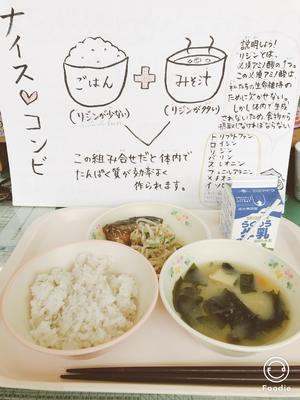 ナイス♡コンビ
ごはん
(リジンが少ない)
+
みそ汁
(リジンが多い)
この組み合せだと体内で
たんぱく質が効率よく
作られます。
説明しよう!
リジンとは、
必須アミノ酸の1つ。
この必須アミノ酸は
私たちの生命維持の
ために欠かせない。
しかし体内で生成
されないため、食物から
摂取しなければならない
トリプトファン
ロイシン
リジン
バリン
スレオニン
フェニルアラニン
メチオニン
イソロイシン
Foodie